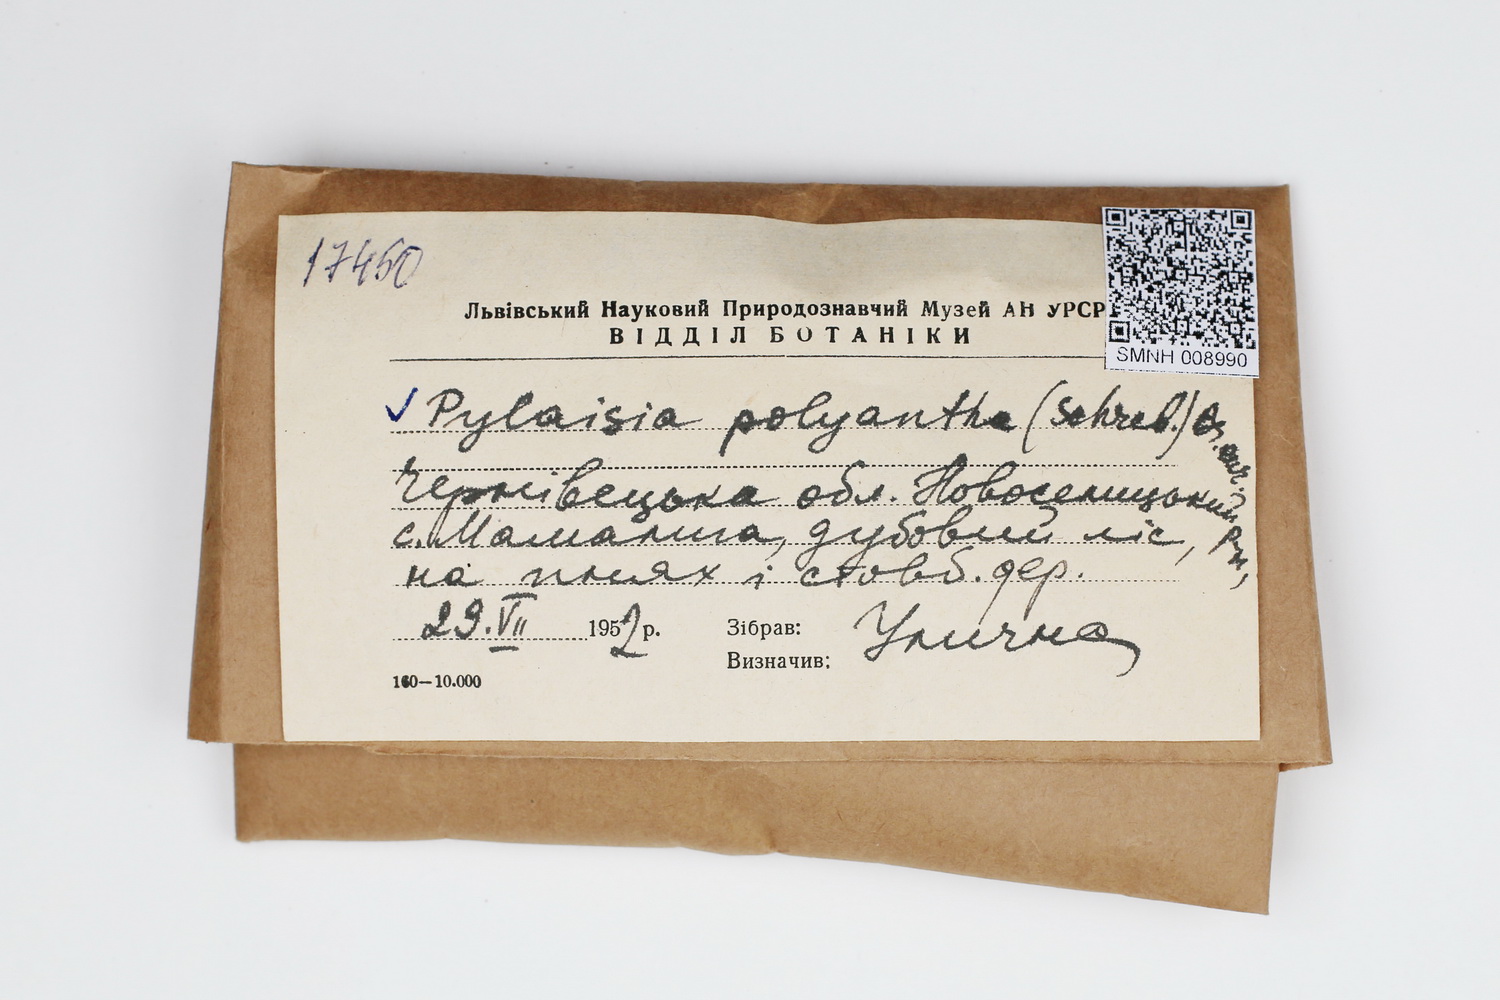 17460
Львівський Науковий Природознавчий Музей АН УРСР
ВІДДІЛ БОТАНІКИ
SMNH 008990
✓ Pylaisia polyantha (Schreb.) Br. eur.
Чернівецька обл. Новоселицький р-н,
с. Мамалига, дубовий ліс,
на пнях і стовб. дер.
29.VII 1952 р.
Зібрав: Улична
Визначив:
160—10.000